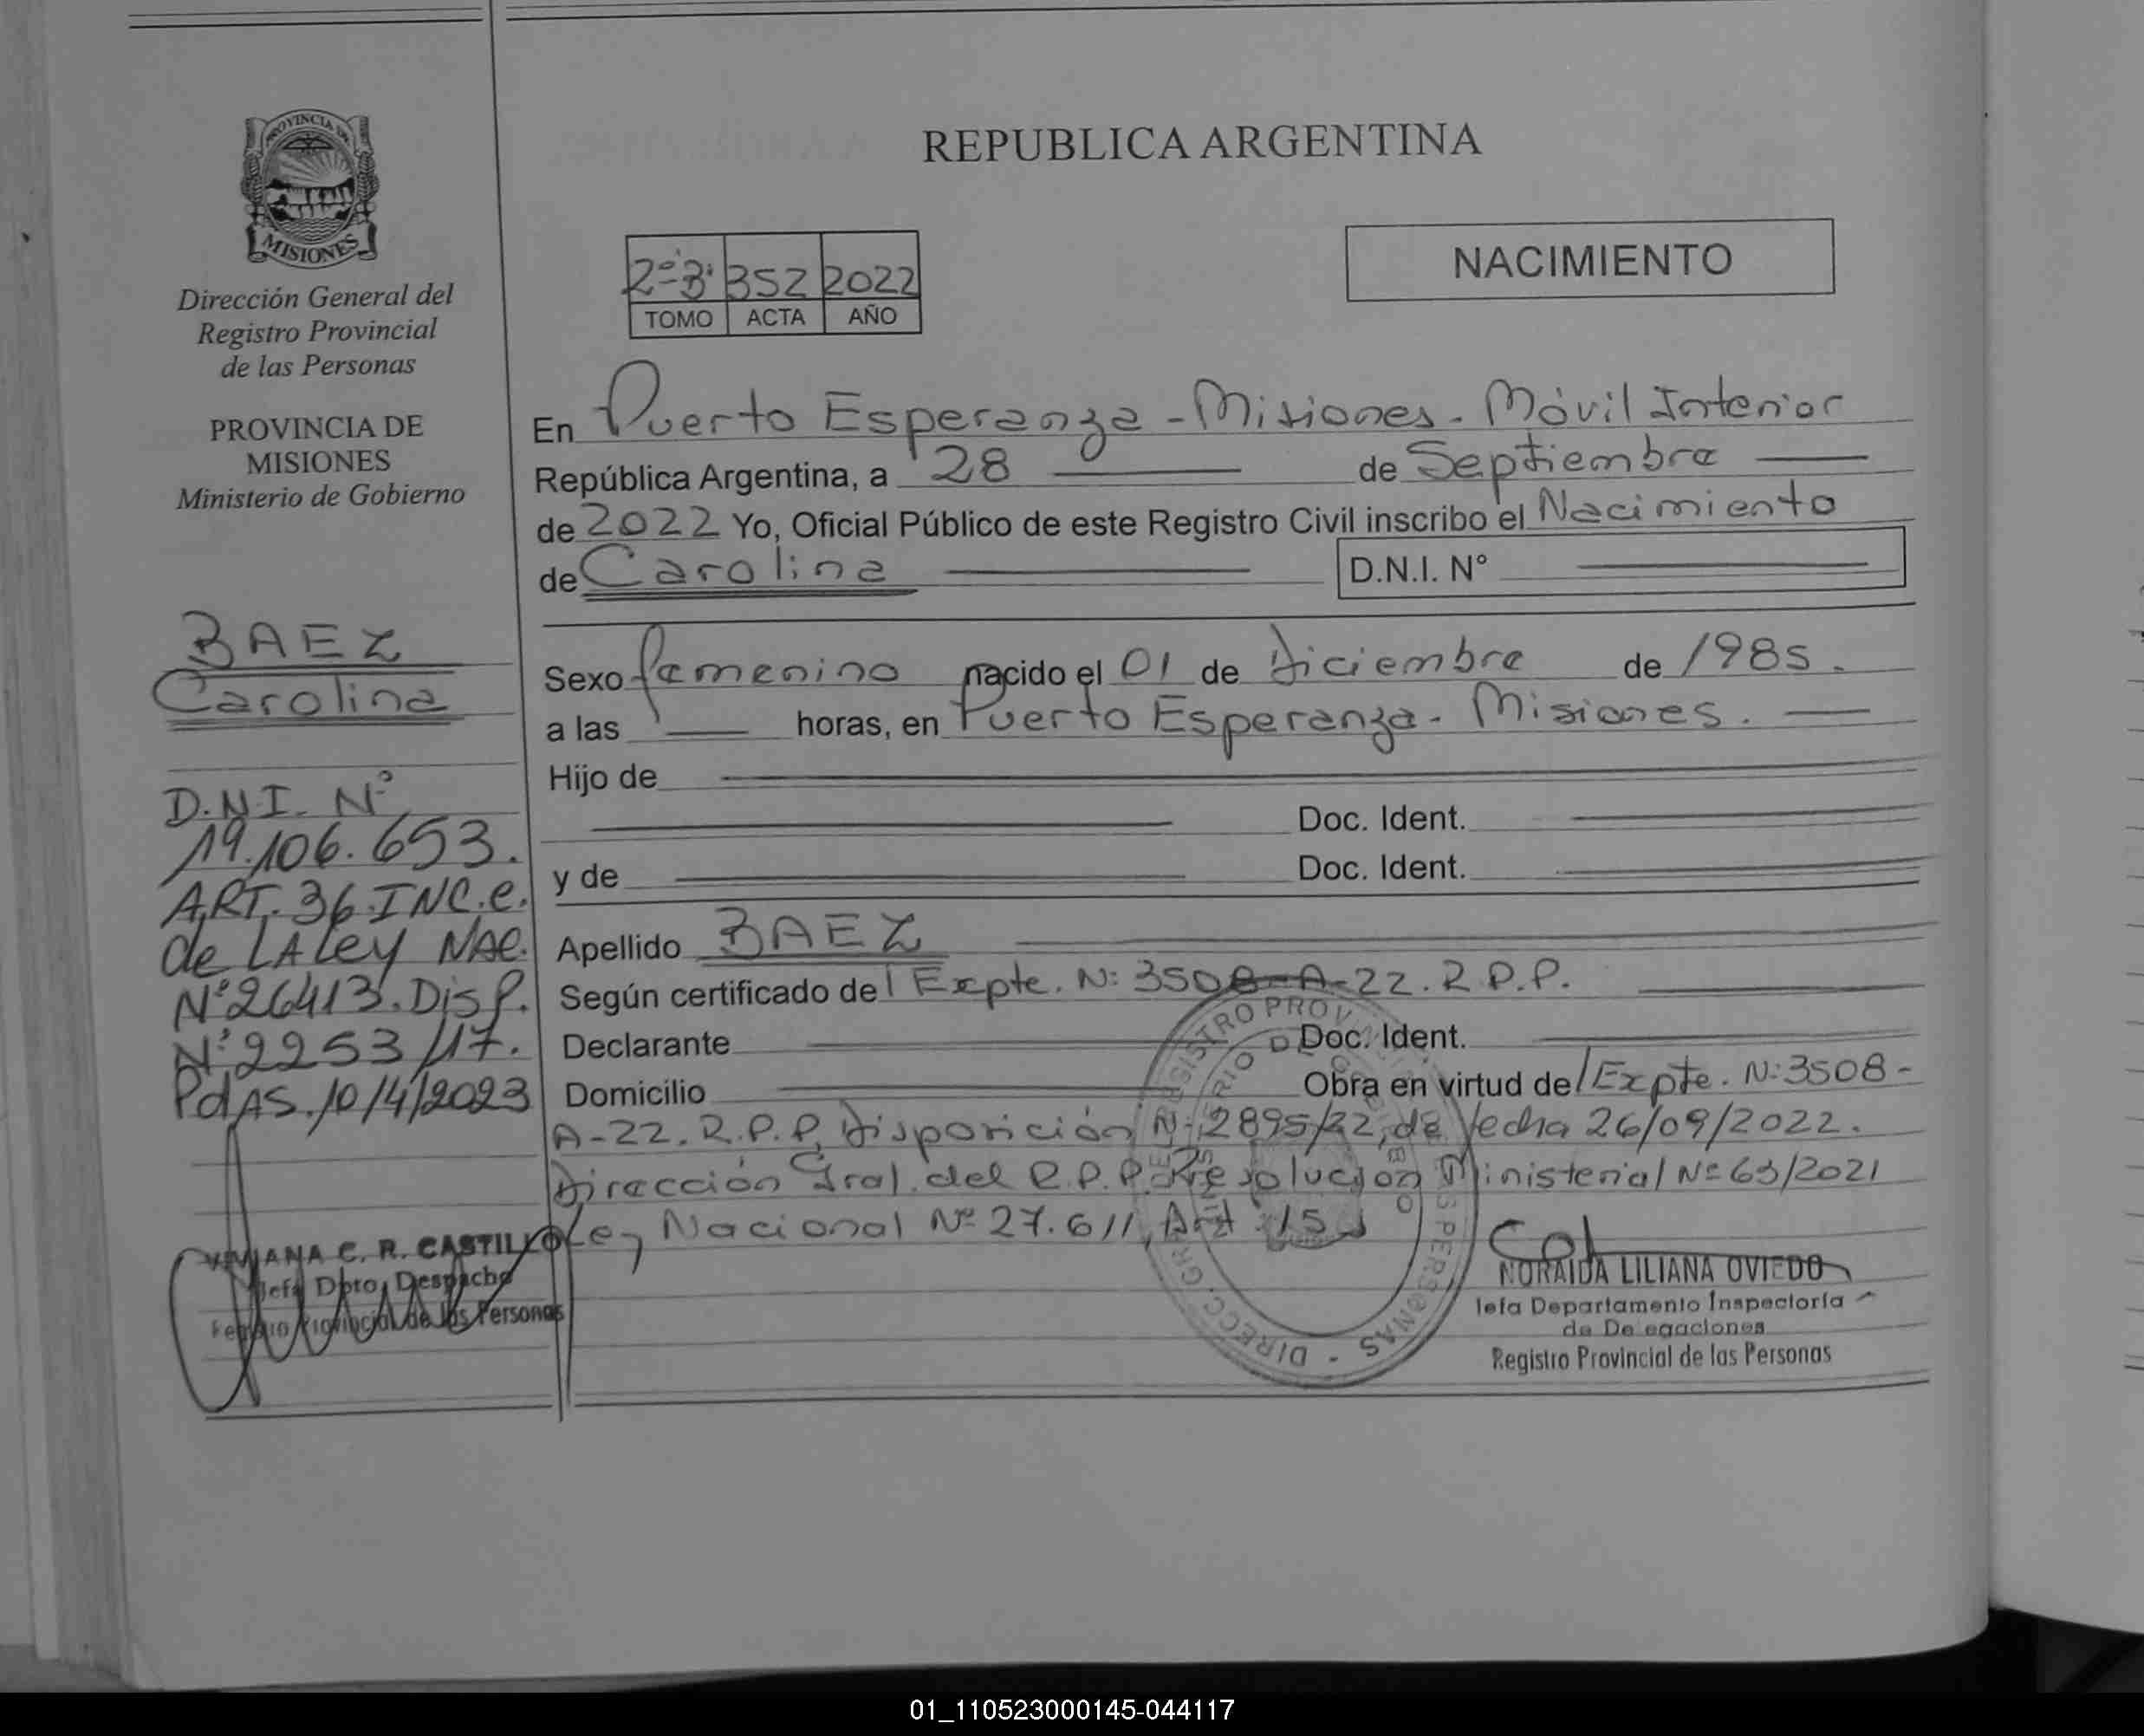 PROVINCIA DE
MISIONES
Dirección General del
Registro Provincial
de las Personas
PROVINCIA DE
MISIONES
Ministerio de Gobierno
BAEZ
Carolina
D.N.I. Nº
19.106.653.
ART. 36. INC. e.
de LA Ley NAC.
Nº 26413. Disp.
Nº 2253/17.
PdAS. 10/4/2023
VIVIANA C. R. CASTILLO
Jefa Dpto. Despacho
Registro Provincial de las Personas
REPUBLICA ARGENTINA
NACIMIENTO
2º-B' 352 2022
TOMO ACTA AÑO
En Puerto Esperanza - Misiones - Móvil Interior
República Argentina, a 28 de Septiembre
de 2022 Yo, Oficial Público de este Registro Civil inscribo el Nacimiento
de Carolina D.N.I. Nº
Sexo femenino nacido el 01 de Diciembre de 1985.
a las horas, en Puerto Esperanza - Misiones.
Hijo de
Doc. Ident.
y de Doc. Ident.
Apellido BAEZ
Según certificado del Expte. Nº 3508-A-22. R.P.P.
Declarante Doc. Ident.
Domicilio Obra en virtud del Expte. Nº 3508-
A-22. R.P.P. Disposición Nº 2895/22, de fecha 26/09/2022.
Dirección Gral. del R.P.P. Resolución Ministerial Nº 63/2021
Ley Nacional Nº 27.611, Art. 15
NORAIDA LILIANA OVIEDO
Jefa Departamento Inspectoría
de Delegaciones
Registro Provincial de las Personas
01_110523000145-044117